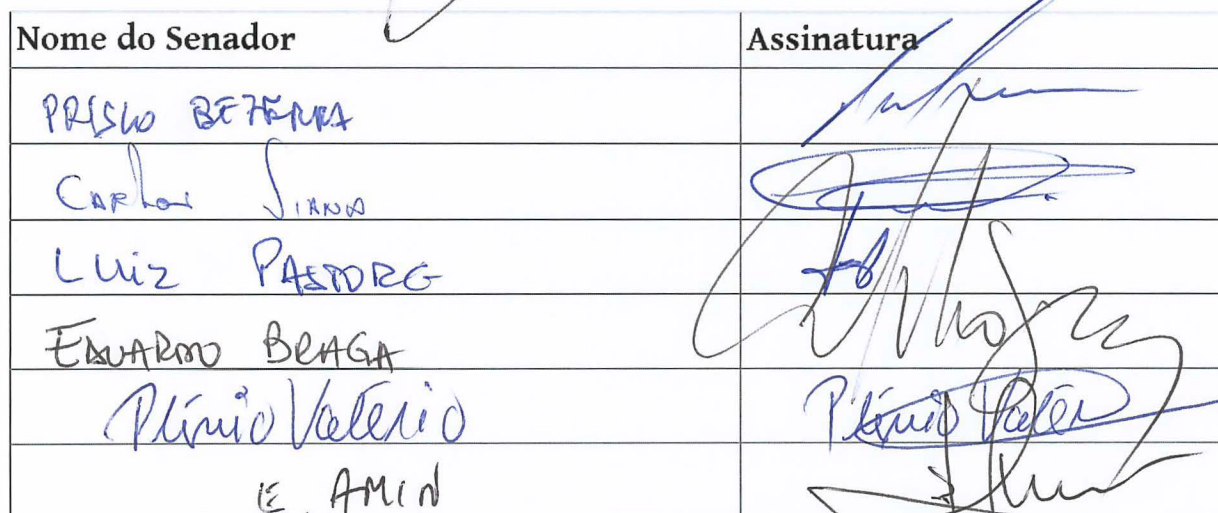 Nome do Senador Assinatura
PRISCO BEZERRA
CARLOS VIANA
LUIZ PASTORE
EDUARDO BRAGA
Plínio Valério Plínio Valér
E. AMIN